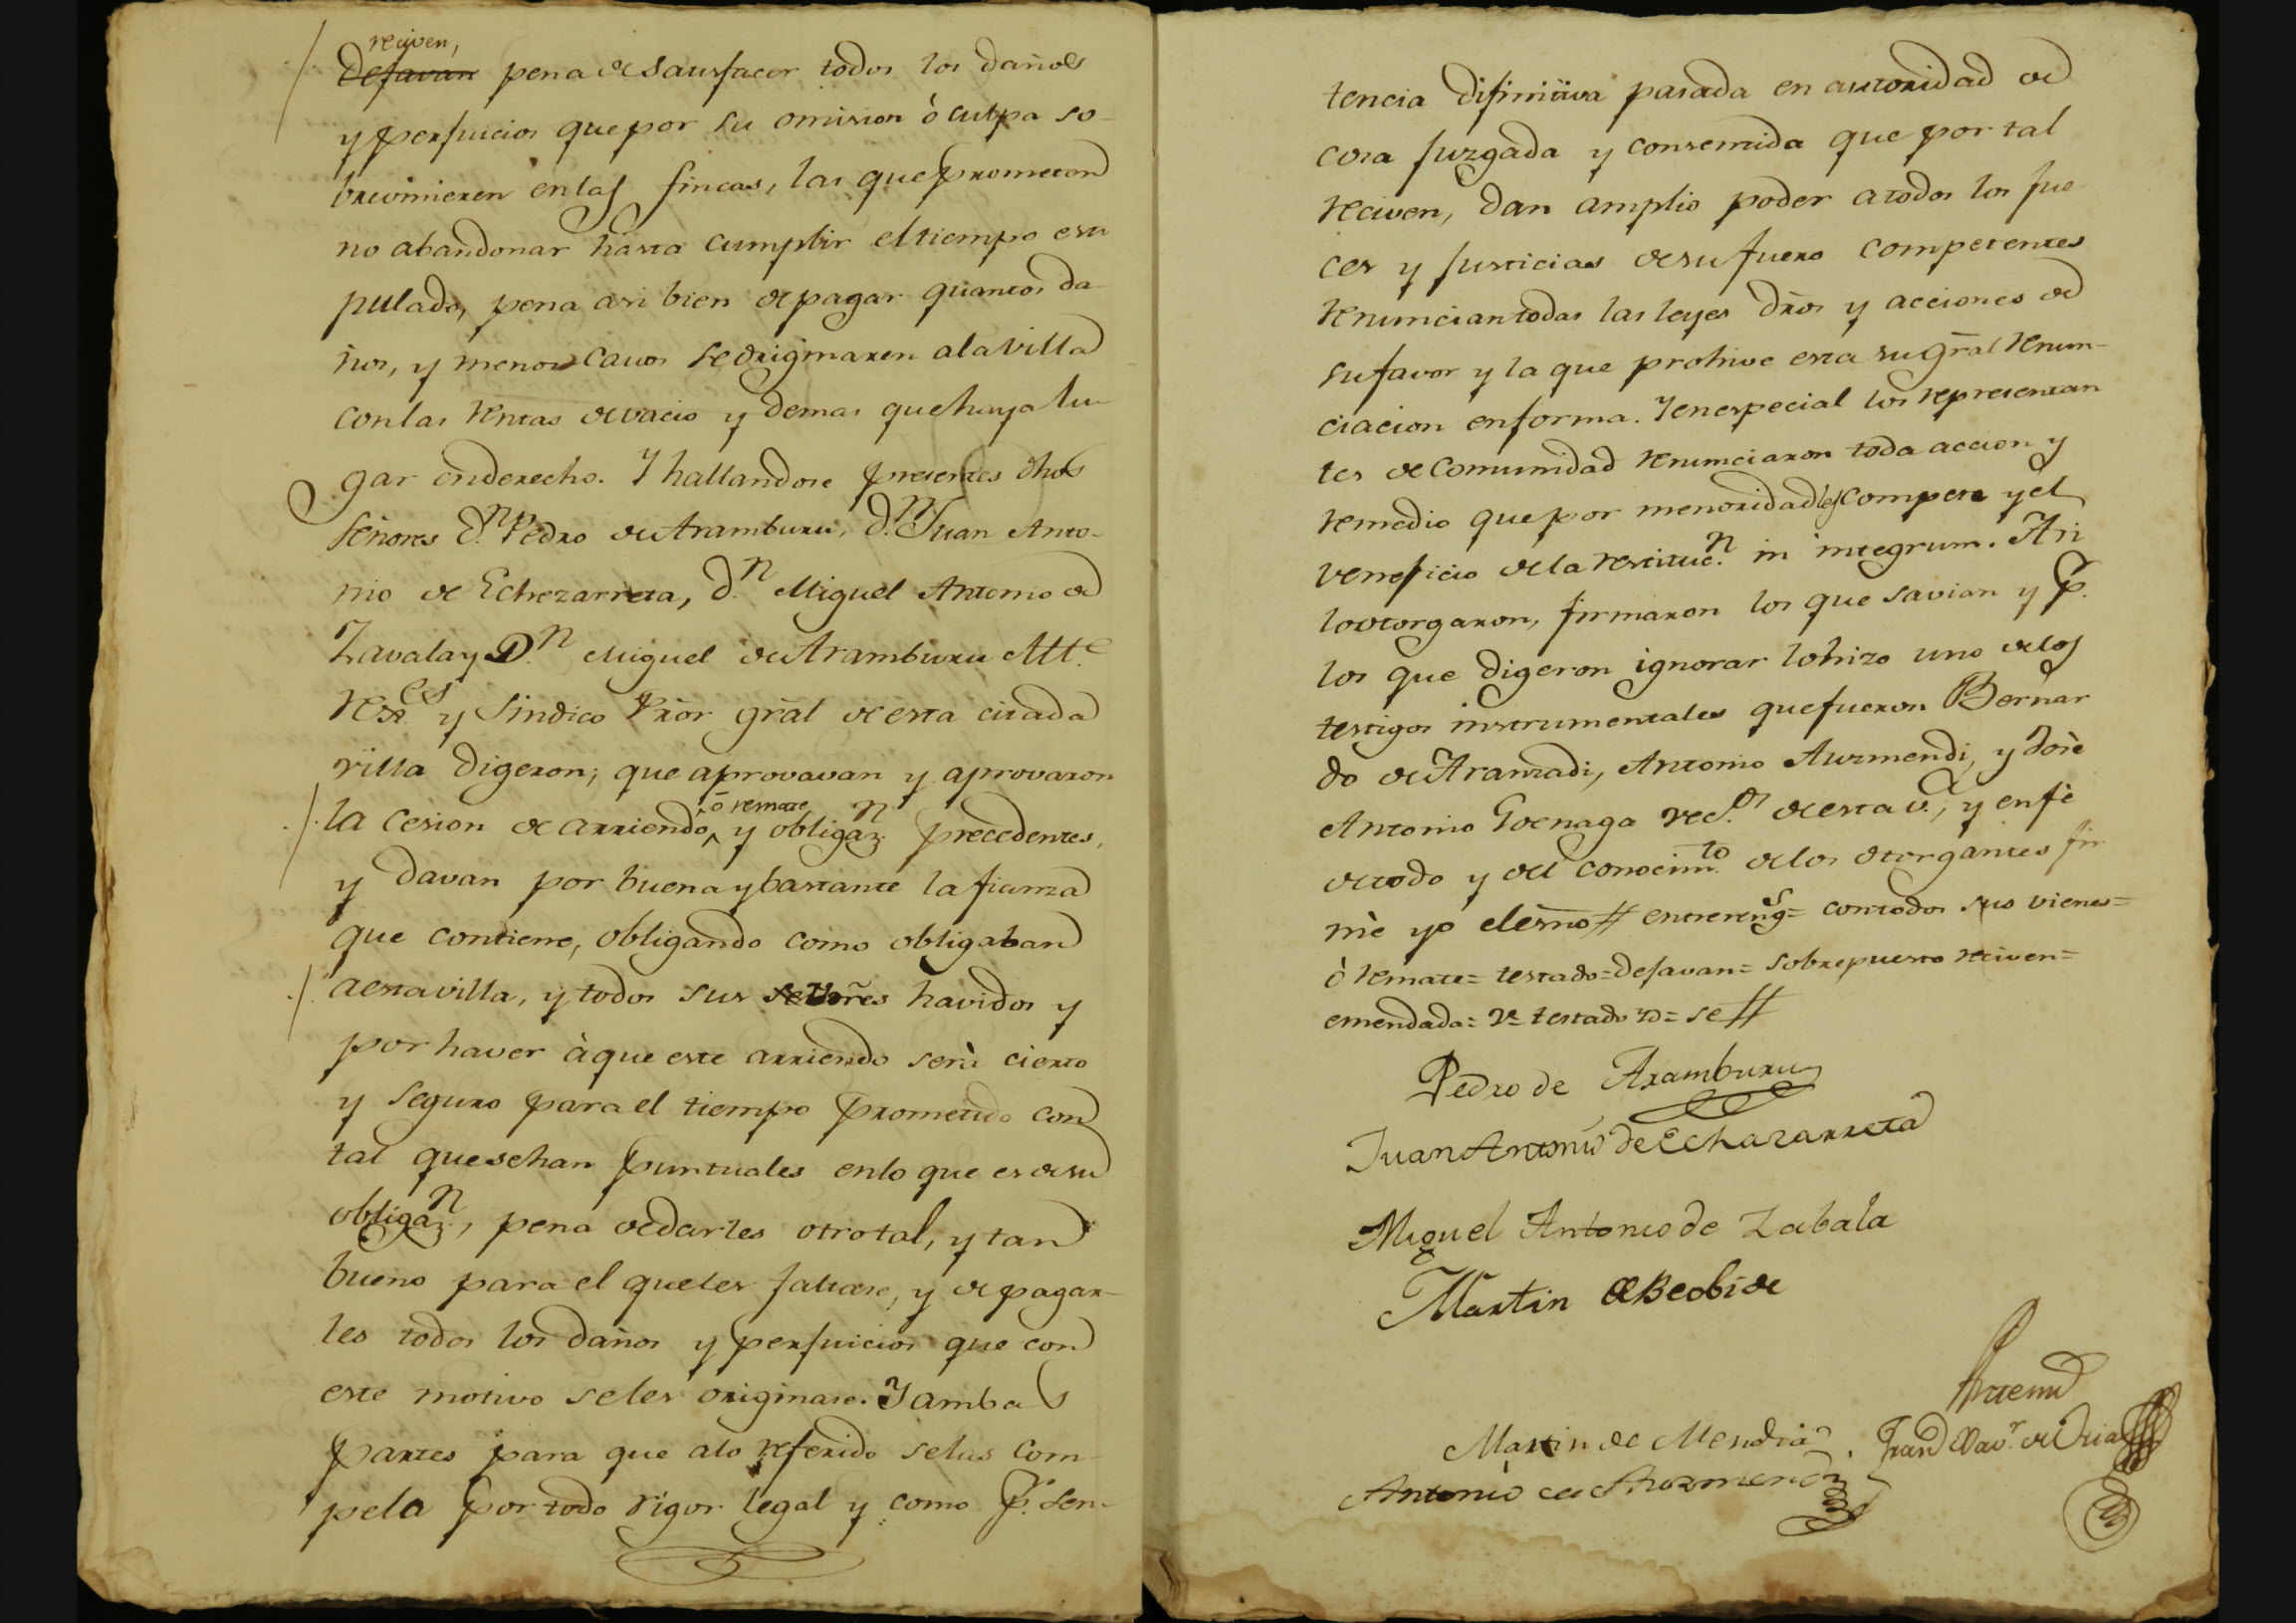 reciven,
Dejavan pena de satisfacer todos los daños
y perjuicios que por su omision ò culpa so-
brevinieren en las fincas, las que prometen
no abandonar hasta cumplir el tiempo esti
pulado, pena asi bien de pagar quantos da-
ños, y menos cavos se originaren a la villa
con las rentas de vacio y demas que haya lu-
gar en derecho. Y hallandose presentes dhos
señores d.n Pedro de Aramburu, d.n Juan Anto-
nio de Echezarreta, d.n Miguel Antonio de
Zavala y D.n Miguel de Aramburu Alt.e
Rex.es y Sindico Prõr grãl de esta citada
villa digeron; que aprovavan y aprovaron
la cesion de arriendo, ó remate y obligaz.n precedentes,
y davan por buena y bastante la fianza
que contiene, obligando como obligaban
a esta villa, y todos sus havidos y
por haver à que este arriendo serà cierto
y seguro para el tiempo prometido con
tal que sehan puntuales en lo que es de su
obligaz.n, pena de darles otro tal, y tan
bueno para el que les faltase, y de pagar-
les todos los daños y perjuicios que con
este motivo se les originase. Y ambas
partes para que a lo referido se las com-
pela por todo rigor legal y como p.r sen-
tencia difinitiva pasada en autoridad de
cosa juzgada y consentida que por tal
reciven, dan amplio poder a todos los jue-
ces y justicias de su fuero competentes
renuncian todas las leyes drõs y acciones de
su favor y la que prohive esta su grãl renun-
ciacion en forma. Y en especial los representan
tes de Comunidad renunciaron toda accion y
remedio que por menoridad les compete y el
veneficio de la restituc.n in integrum. Asi
lo otorgaron, firmaron los que savian y p.r
los que digeron ignorar lo hizo uno de los
testigos instrumentales que fueron Bernar
do de Aranzadi, Antonio Auzmendi, y Josè
Antonio Goenaga vec.os de esta v.a; y en fè
de todo y del conocim.to de los otorgantes fir
mè yo el esño # entrereng.s = con todos sus vienes =
ò remate = testado = dejavan = sobrepuesto reciven =
emendada = testado = se #
Pedro de Aramburu
Juan Antonio de Echazarreta
Miguel Antonio de Zabala
Martin de Beobide
Antemi
Martin de Mendia
Fran.co Xav.r de Oria
Antonio de Auzmendi